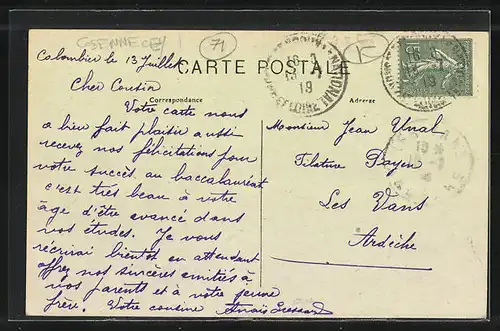 GSENNECEY
71
Colombier le 13 Juillet
CARTE POSTALE
Cher Cousin
Correspondance
Adresse
Votre carte nous
a bien fait plaisir aussi
recevez nos félicitations pour
votre succès au baccalauréat
c'est très beau à votre
âge d'être avancé dans
vos études. Je vous
écrirai bientôt en attendant
offrez nos sincères amitiés à
vos parents et à votre jeune
frère. Votre cousine Anaïs
Monsieur Jean Unal
Filature Payen
Les Vans
Ardèche
16 - 7
19
SAONE-ET-LOIRE
16
19